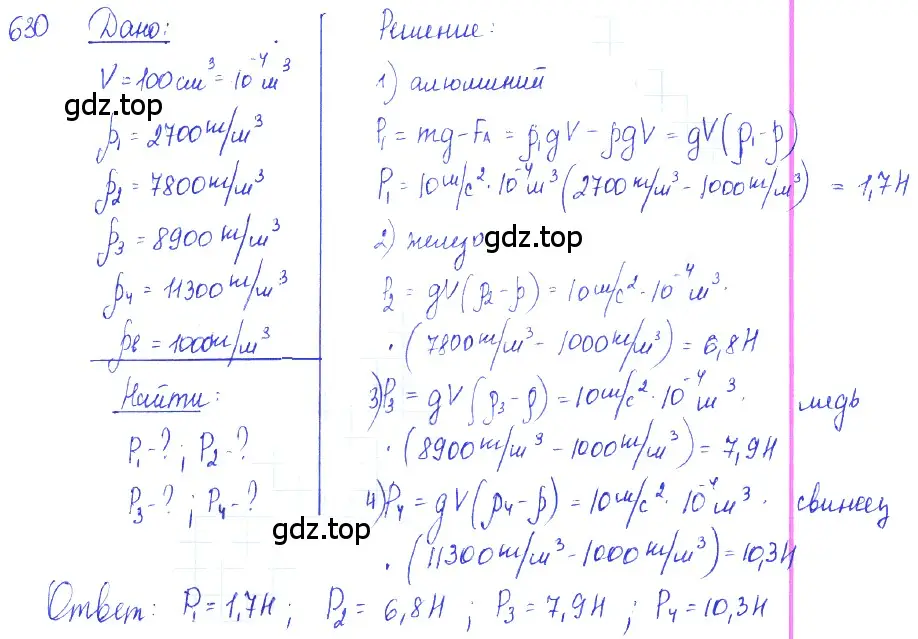 630 Дано:
V = 100 см³ = 10⁻⁴ м³
gdz.top
ρ₁ = 2700 кг/м³
ρ₂ = 7800 кг/м³
ρ₃ = 8900 кг/м³
ρ₄ = 11300 кг/м³
ρв = 1000 кг/м³
Найти:
P₁ - ? ; P₂ - ?
P₃ - ? ; P₄ - ?
gdz.top
Решение:
1) алюминий
P₁ = mg - Fₐ = ρ₁gV - ρgV = gV(ρ₁ - ρ)
P₁ = 10 м/с² · 10⁻⁴ м³ (2700 кг/м³ - 1000 кг/м³) = 1,7 Н
2) железо
gdz.top
P₂ = gV(ρ₂ - ρ) = 10 м/с² · 10⁻⁴ м³ ·
· (7800 кг/м³ - 1000 кг/м³) = 6,8 Н
3) P₃ = gV(ρ₃ - ρ) = 10 м/с² · 10⁻⁴ м³ · медь
· (8900 кг/м³ - 1000 кг/м³) = 7,9 Н
4) P₄ = gV(ρ₄ - ρ) = 10 м/с² · 10⁻⁴ м³ · свинец
· (11300 кг/м³ - 1000 кг/м³) = 10,3 Н
Ответ: P₁ = 1,7 Н ; P₂ = 6,8 Н ; P₃ = 7,9 Н ; P₄ = 10,3 Н